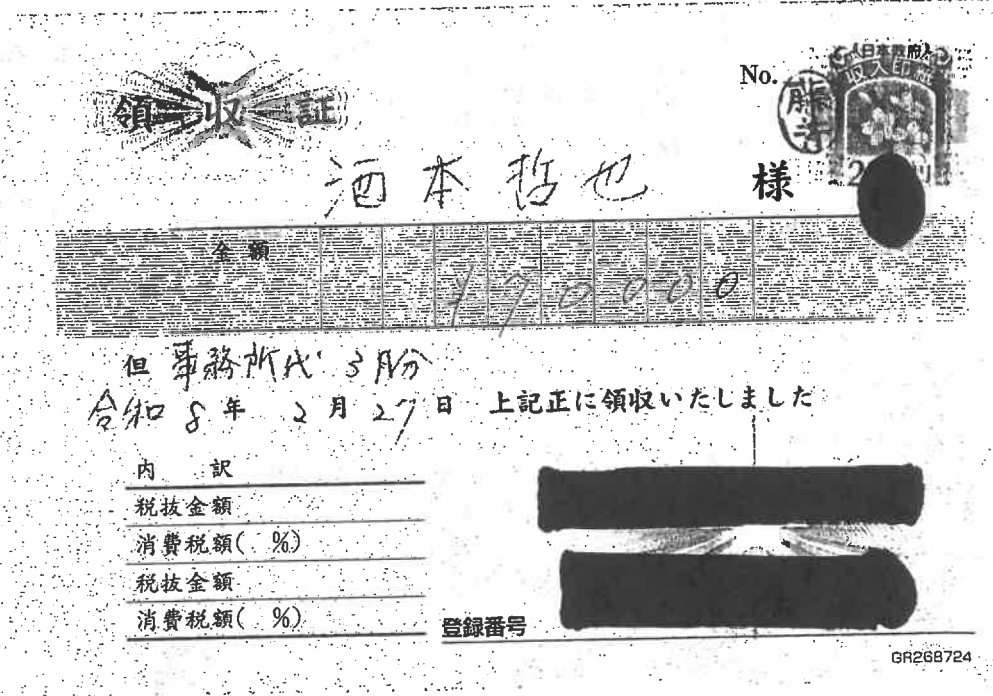 領収証
No.
日本政府
収入印紙
酒本哲也 様
金額 ¥70000
但 事務所代 3月分
令和8年 2月27日 上記正に領収いたしました
内訳
税抜金額
消費税額( %)
税抜金額
消費税額( %)
登録番号
GR268724